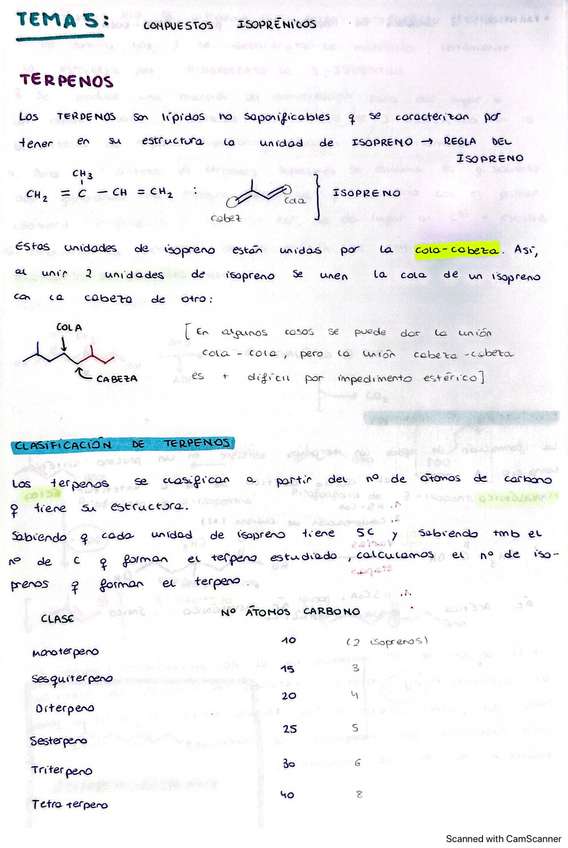 TEMA 5: COMPUESTOS ISOPRÉNICOS
TERPENOS
Los TERPENOS son lípidos no saponificables q se caracterizan por
tener en su estructura la unidad de ISOPRENO → REGLA DEL
ISOPRENO
CH3
CH2 = C - CH = CH2 :
cola
ISOPRENO
cabez
Estas unidades de isopreno están unidas por la cola-cabeza. Así,
al unir 2 unidades de isopreno se unen la cola de un isopreno
con la cabeza de otro:
COLA
CABEZA
[En algunos casos se puede dar la unión
cola - cola, pero la unión cabeza-cabeza
es + difícil por impedimento estérico]
CLASIFICACIÓN DE TERPENOS
Los terpenos se clasifican a partir del nº de átomos de carbono
q tiene su estructura.
Sabiendo q cada unidad de isopreno tiene 5C y sabiendo tmb el
nº de C q forman el terpeno estudiado, calculamos el nº de iso-
prenos q forman el terpeno.
CLASE Nº ÁTOMOS CARBONO
Monoterpeno 10 (2 isoprenos)
Sesquiterpeno 15 3
Diterpeno 20 4
Sesterpeno 25 5
Triterpeno 30 6
Tetra terpeno 40 8
Scanned with CamScanner